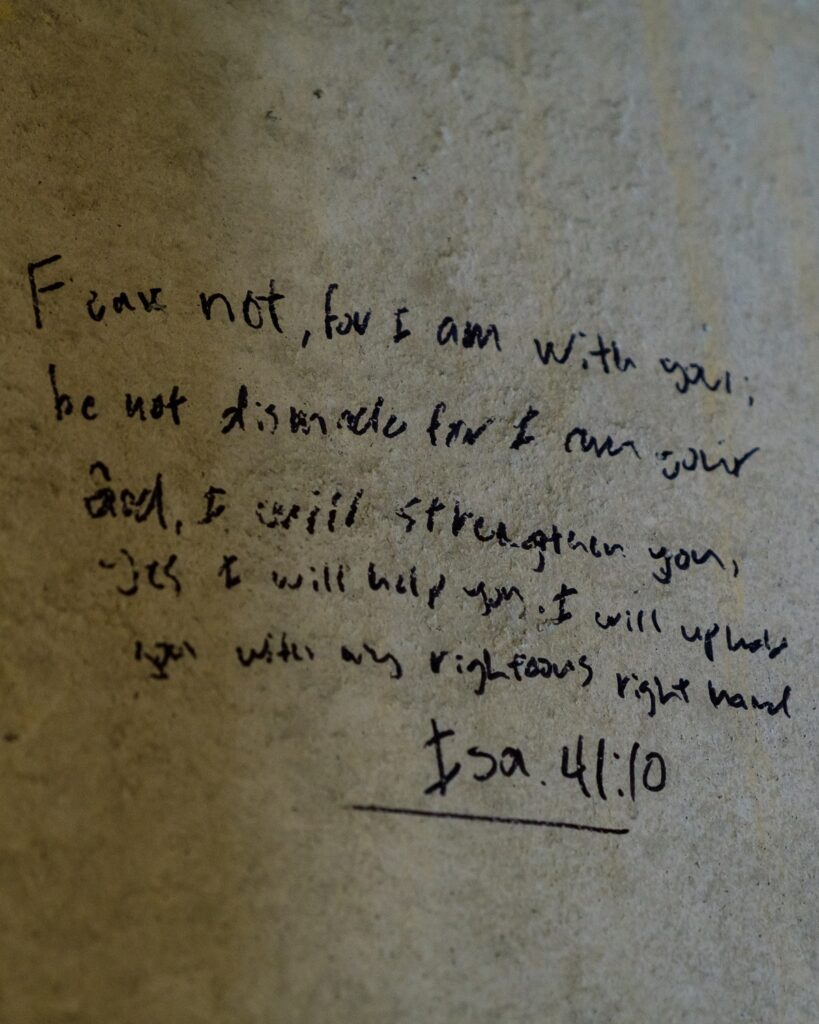 Fear not, for I am with you;
be not dismade for I am your
God, I will strengthen you,
Yes I will help you. I will uphold
you with my righteous right hand
Isa. 41:10